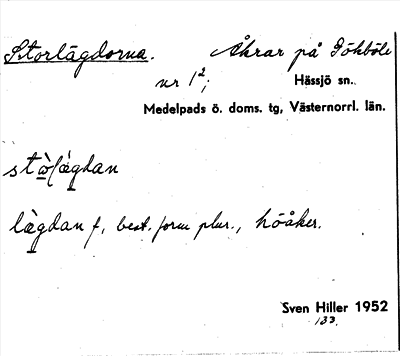 Storlägdorna. Åkrar på Gökböle
nr 1²;
Hässjö sn.
Medelpads ö. doms. tg, Västernorrl. län.
stò̱lä̀gdan
lä̀gdan f, best. form plur., höåker.
Sven Hiller 1952
133.